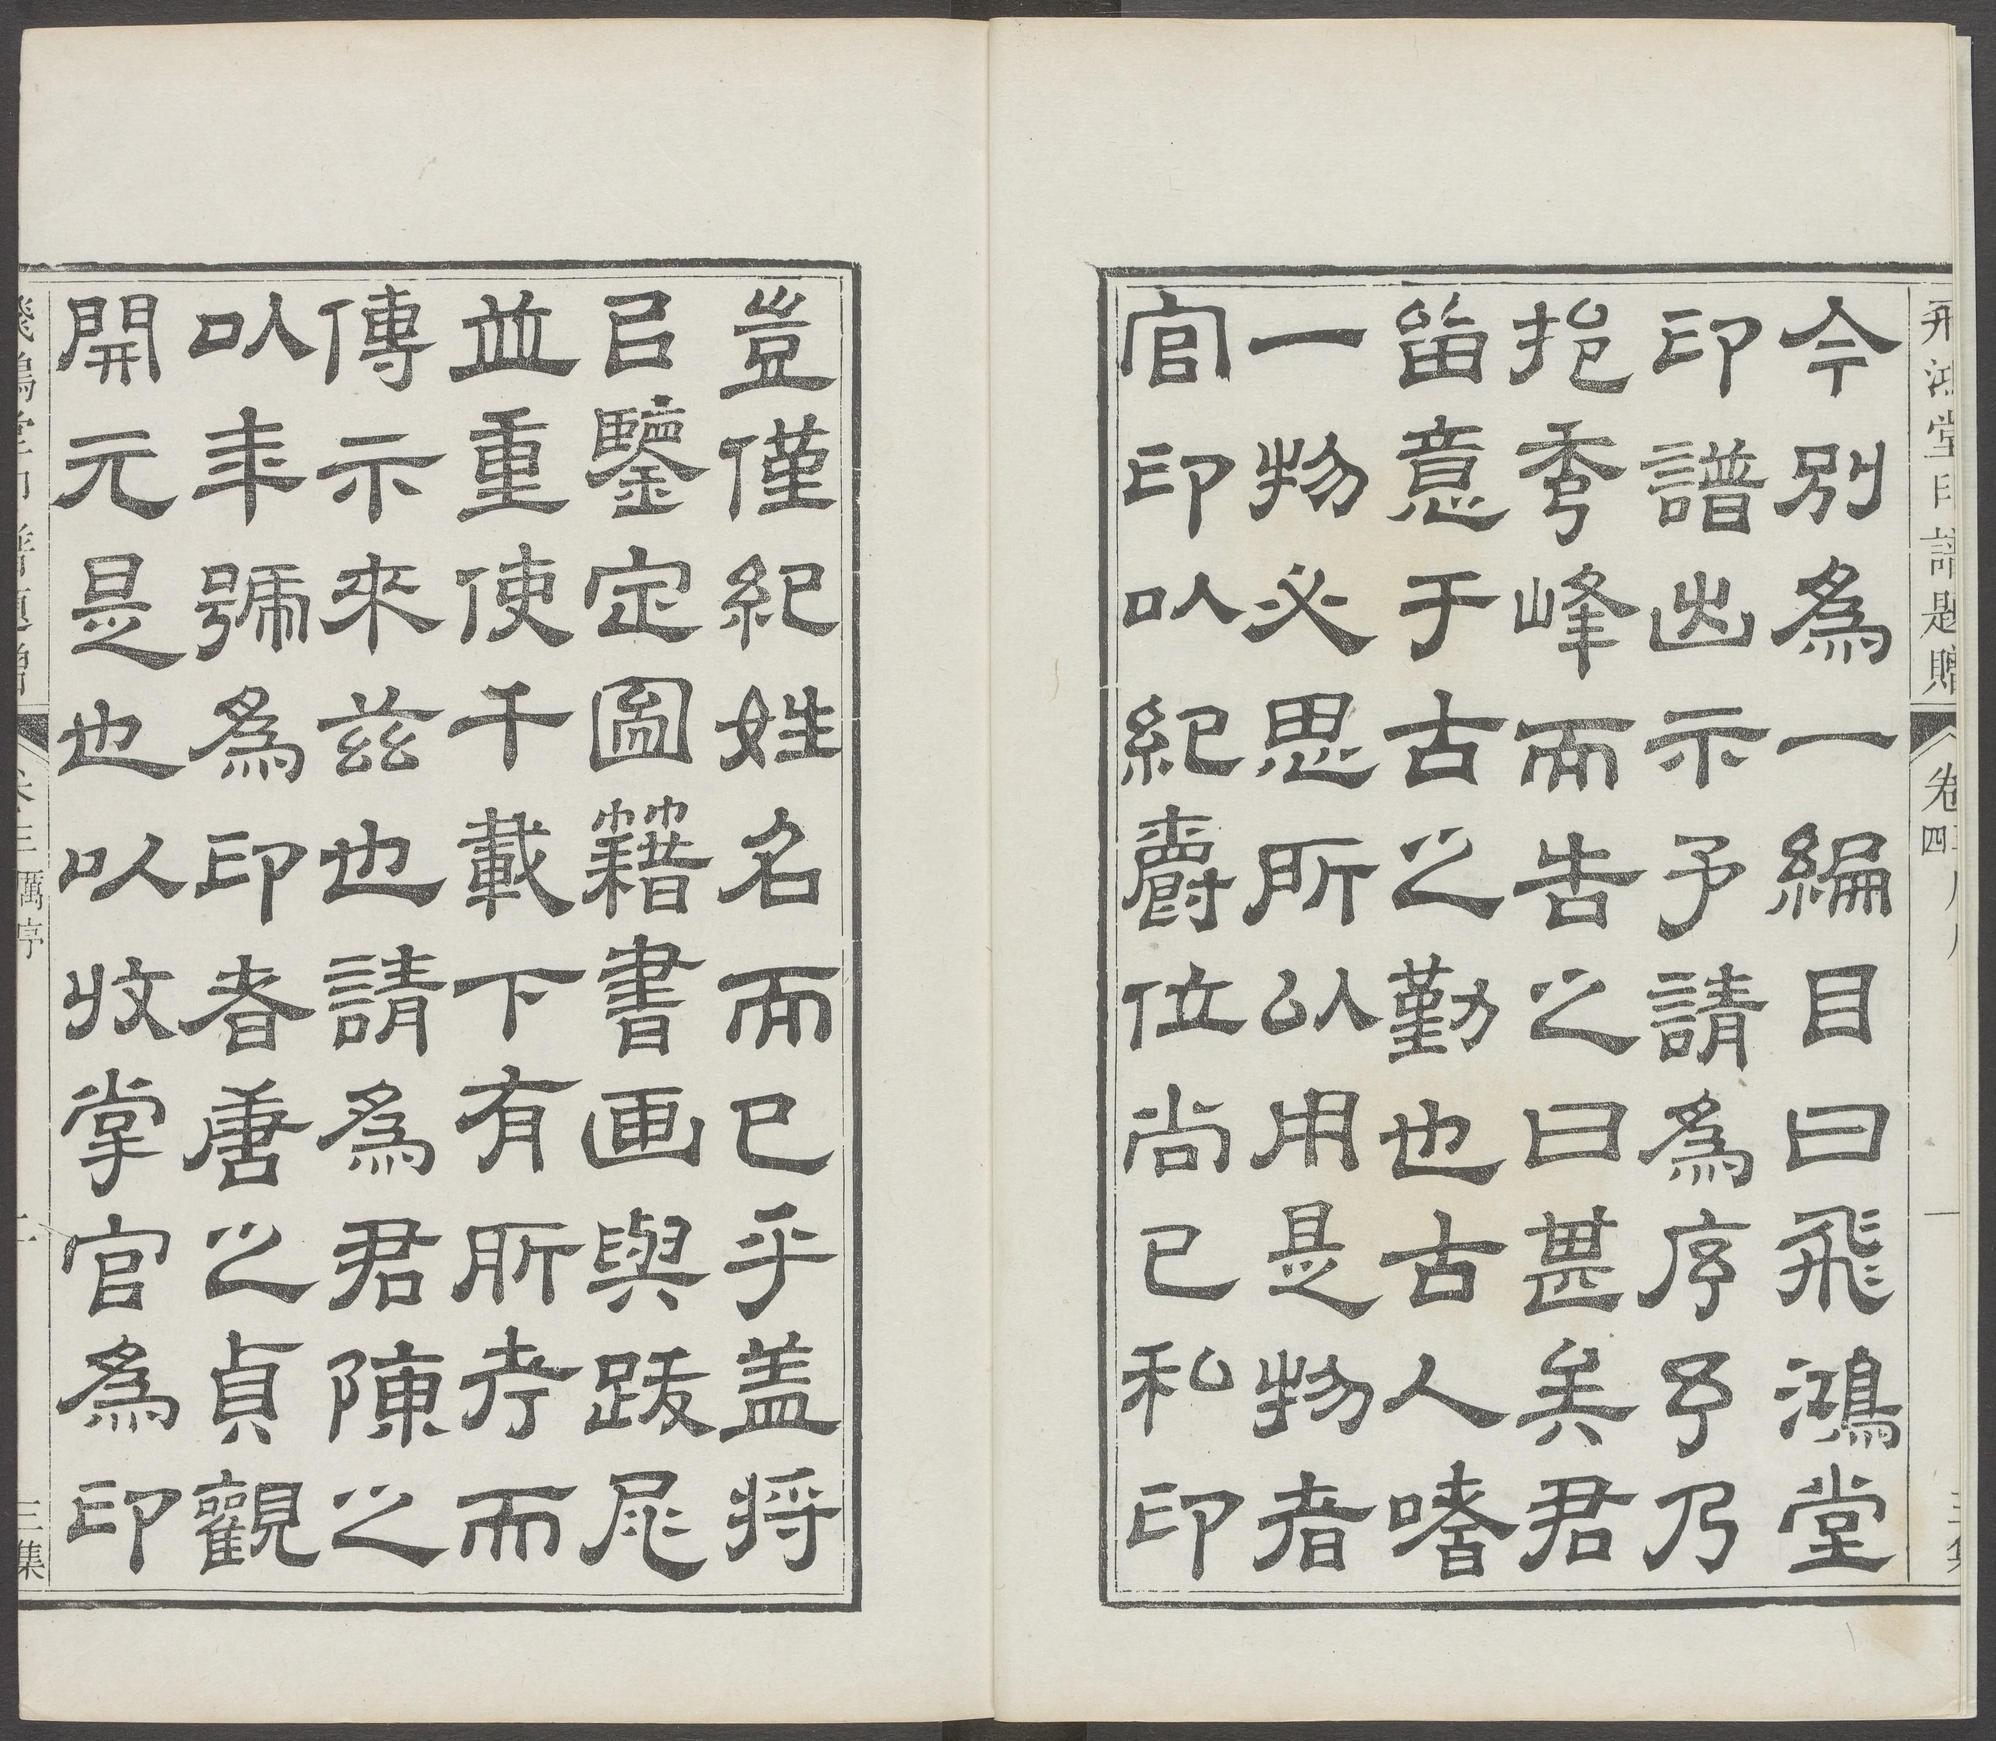 飛鴻堂印譜題贈 卷三 四
今別為一編目曰飛鴻堂
印譜出示予請為序予乃
挹秀峰而告之曰甚矣君
留意于古之勤也古人嗜
一物必思所以用是物者
官印以紀爵位尚已私印
豈僅紀姓名而已乎盖将
㠯鑒定圖籍書画與跋尾
並重使千載下有所考而
傳示來茲也請為君陳之
以年號為印者唐之貞觀
開元是也以收掌官為印
三厲序
二
三集